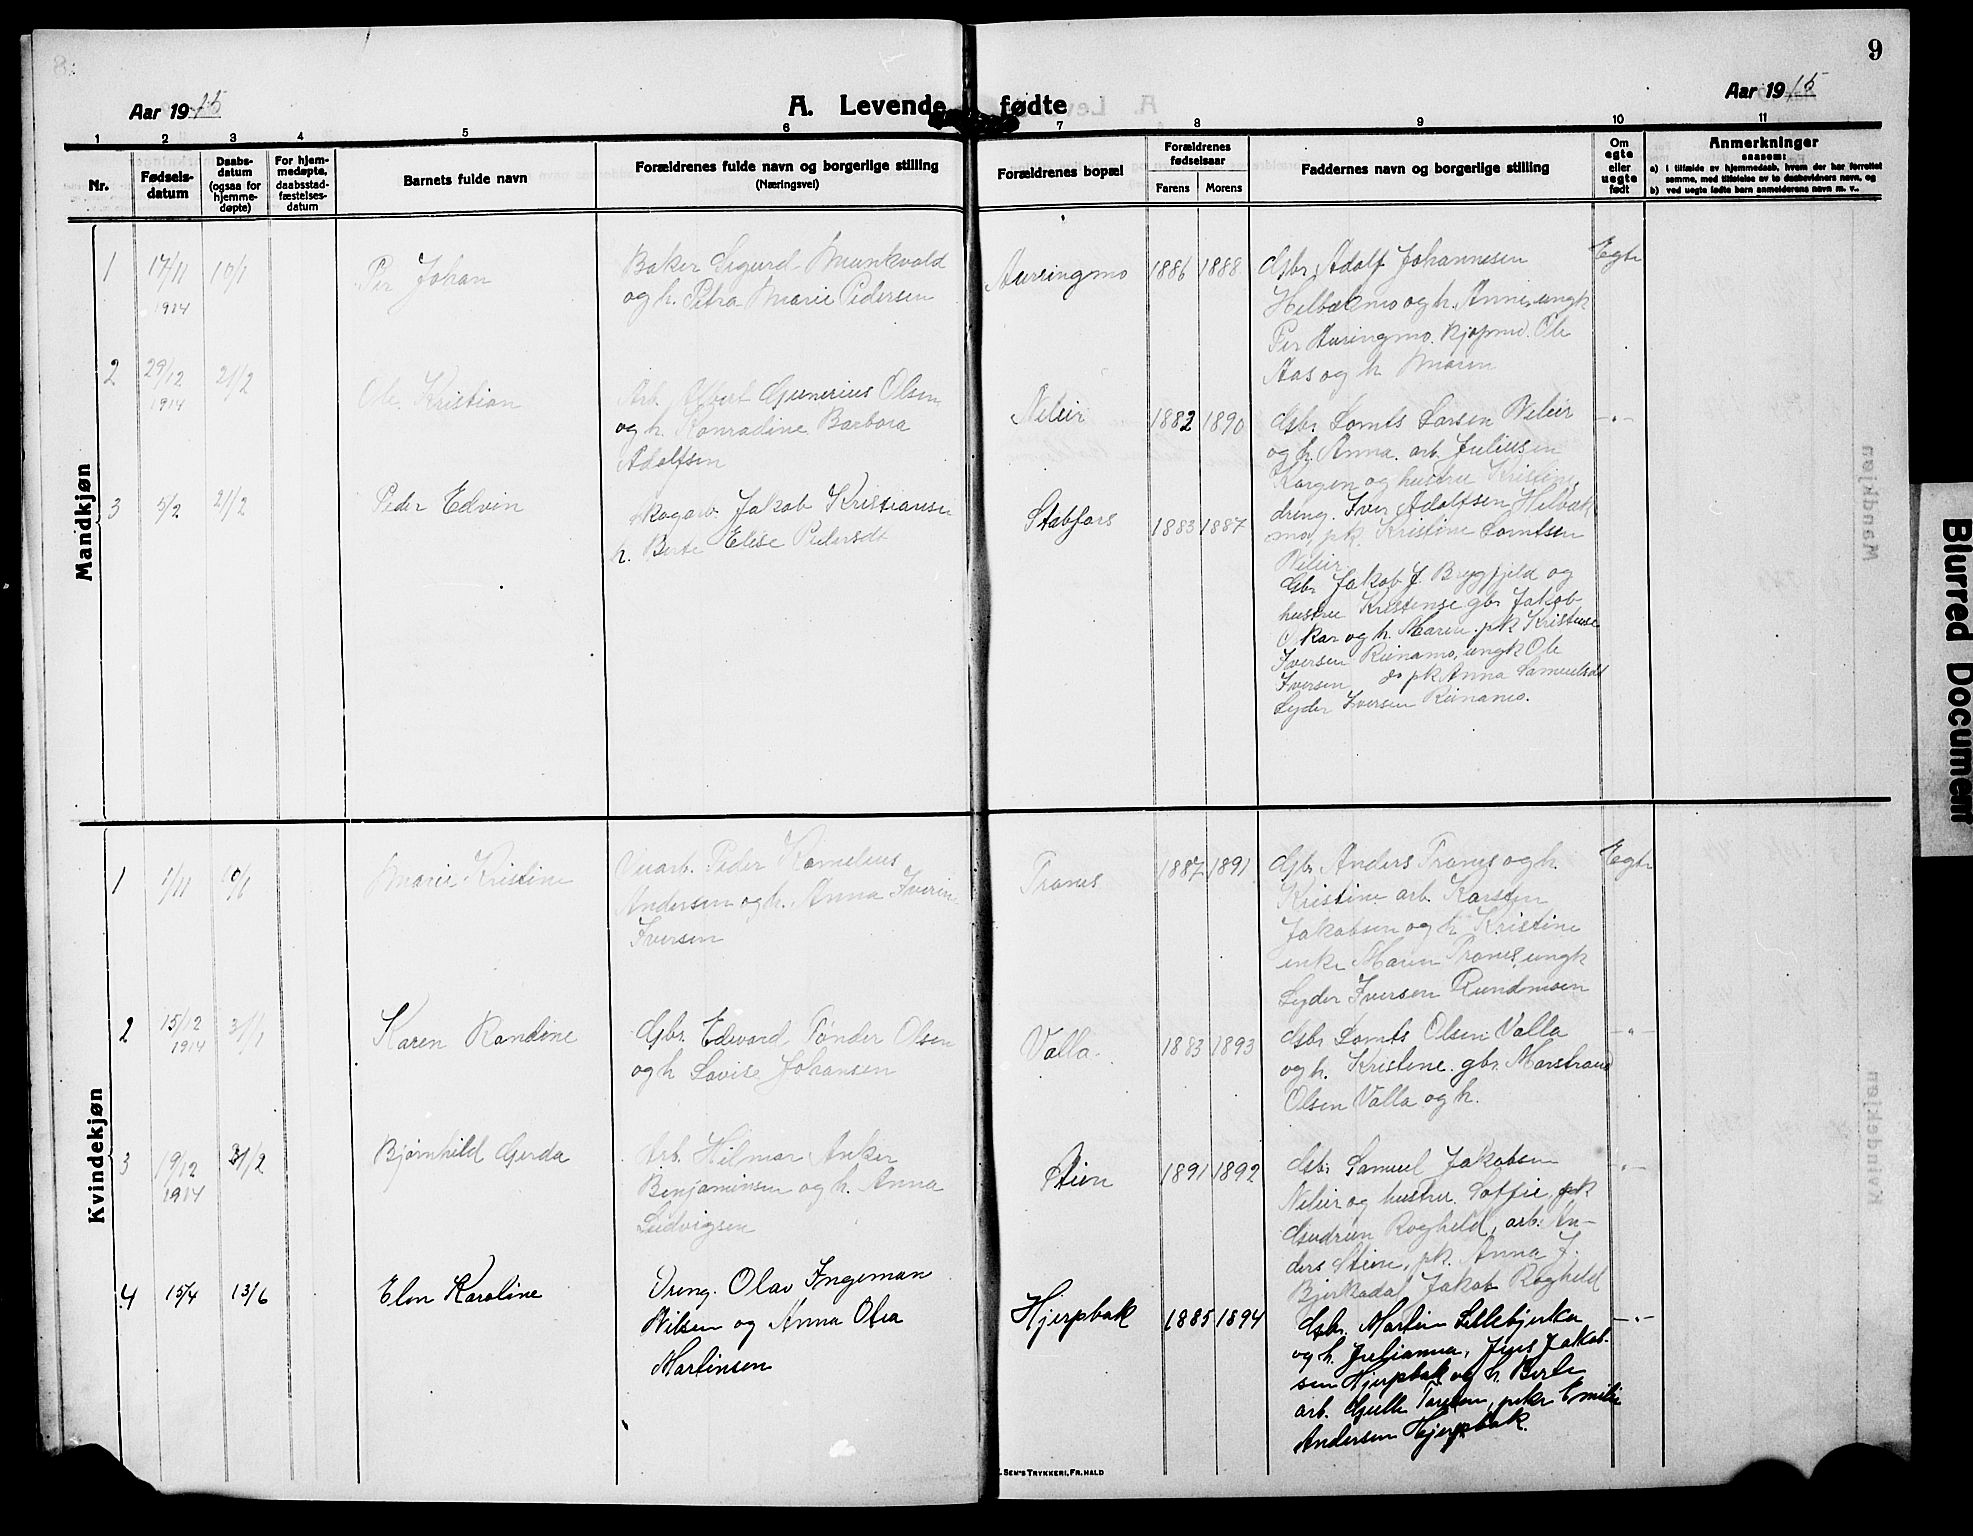 9
Aar 1915
A. Levende fødte
Aar 1915
1 2 3 4 5 6 7 8 9 10 11
Nr.
Fødsels-
datum
Daabs-
datum
(ogsaa for
hjemme-
døpte)
For hjem-
medøpte,
daabsstad-
fæstelses-
datum
Barnets fulde navn
Forældrenes fulde navn og borgerlige stilling
(Næringsvei)
Forældrenes bopæl
Forældrenes
fødselsaar
Farens Morens
Faddernes navn og borgerlige stilling
Om
egte
eller
uegte
født
Anmerkninger
saasom:
a) i tilfælde av hjemmedaab, hvem der har forrettet
samme, med tilføielse av to daabsvidners navn, og
b) ved uegte fødte barn anmelderens navn m. v..
Mandkjøn
1 17/11 1914 10/1
Per Johan
Baker Sigurd Munkvold
og h. Petra Marie Pedersen
Auringmo
1886 1888
Gbr. Adolf Johannesen
Helbækmo og h. Anne, ungk
Per Auringmo. kjøpmd. Ole
Aas og h Maren
Egte
2 29/12 1914 21/2
Ole Kristian
Arb. Albert Gunerius Olsen
og h. Konradine Barbora
Adolfsen
Nileir
1882 1890
Gbr. Lornts Larsen Nileir
og h. Anna. arb. Julius
og hustru Kristine,
dreng. Iver Adolfsen Helbæk
mo, pk. Kristine Lorntsen
Nileir
-"-
3 5/2 21/2
Peder Edvin
skogarb. Jakob Kristiansen
h. Berte Elise Pedersdt
Stabfors
1883 1887
Gbr Jakob J. Brygfjeld og
hustru Kristense gbr Jakob
Oskar og h. Maren. pk Kristense
Iversen Rünamo, ungk Ole
Iversen do pk Anna Samuelsdt
Lyder Iversen Rünamo.
Kvindekjøn
1 1/11
Marie Kristine
Peder Kornelius
Andersen og h. Anna Iverine
Iversen
Tranes
1887 1891
Gbr Anders Tranes og h.
Kristine arb. Karsten
Jakobsen og h Kristine
enke Maren Tranes, ungk
Lyder Iversen Rundmoen
Egte
2 15/12 1914 31/1
Karen Randine
Gbr. Edvard Tønder Olsen
og h Lovise Johansen
Valla.
1883 1893
Gbr Lornts Olsen Valla
og h. Kristine. gbr. Marstrand
Olsen Valla og h.
-"-
3 19/12 1914 21/2
Bjørnhild Gerda
Arb. Hilmar Anker
Benjaminsen og h. Anna
Ludvigsen
Stien
1891 1892
Gbr Samuel Jakobsen
Nileir og hustru Soffie, pk
Gudrun Røghild, arb. An-
ders Stien, pk. Anna J.
Bjerkadal Jakob Røghild
-"-
4 15/4 13/6
Elen Karoline
Dreng. Olav Ingeman
Nilsen og Anna Olea
Martinsen
Hjerpbak
1885 1894
Gbr. Martin Lillebjerka
og h. Julianna, Jens Jakob-
sen Hjerpbak og h. Berte
arb. Torsten, Emilie
Andersen Hjerpbak.
-"-
SEN'S TRYKKERI, FR.HALD
Blurred Document